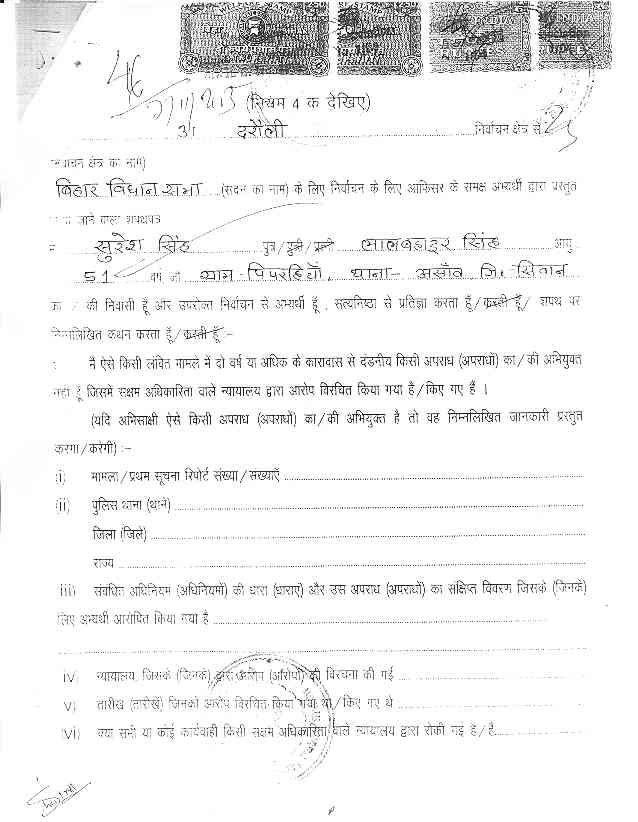 46
(नियम 4 क देखिए)
दरौली निर्वाचन क्षेत्र से
(निर्वाचन क्षेत्र का नाम)
बिहार विधान सभा (सदन का नाम) के लिए निर्वाचन के लिए आफिसर के समक्ष अभ्यर्थी द्वारा प्रस्तुत
जाने वाला शपथपत्र
सुरेश सिंह पुत्र/पुत्री/पत्नी लालबहादुर सिंह आयु
51 वर्ष जो ग्राम- पिपरहियाँ, थाना- असाँव जि. सिवान
का / की निवासी हूँ और उपरोक्त निर्वाचन से अभ्यर्थी हूँ , सत्यनिष्ठा से प्रतिज्ञा करता हूँ/करती हूँ/ शपथ पर
निम्नलिखित कथन करता हूँ/करती हूँ :-
मै ऐसे किसी लंबित मामले में दो वर्ष या अधिक के कारादास से दंडनीय किसी अपराध (अपराधों) का/की अभियुक्त
नहीं हूँ जिसमें सक्षम अधिकारिता वाले न्यायालय द्वारा आरोप विरचित किया गया है/किए गए हैं ।
(यदि अभिसाक्षी ऐसे किसी अपराध (अपराधों) का/की अभियुक्त है तो वह निम्नलिखित जानकारी प्रस्तुत
करेगा/करेगी) :-
(i) मामला/प्रथम सूचना रिपोर्ट संख्या/संख्याएँ
(ii) पुलिस थाना (थाने)
जिला (जिले)
राज्य
iii) संबंधित अधिनियम (अधिनियमों) की धारा (धाराएं) और उस अपराध (अपराधों) का संक्षिप्त विवरण जिसके (जिनके)
लिए अभ्यर्थी आरोपित किया गया है
iv) न्यायालय, जिसके (जिनके) द्वारा आरोप (आरोपों) की विरचना की गई
v) तारीख (तारीखें) जिनको आरोप विरचित किया गया था/किए गए थे
(vi) क्या सभी या कोई कार्यवाही किसी सक्षम अधिकारिता वाले न्यायालय द्वारा रोकी गई है/हैं